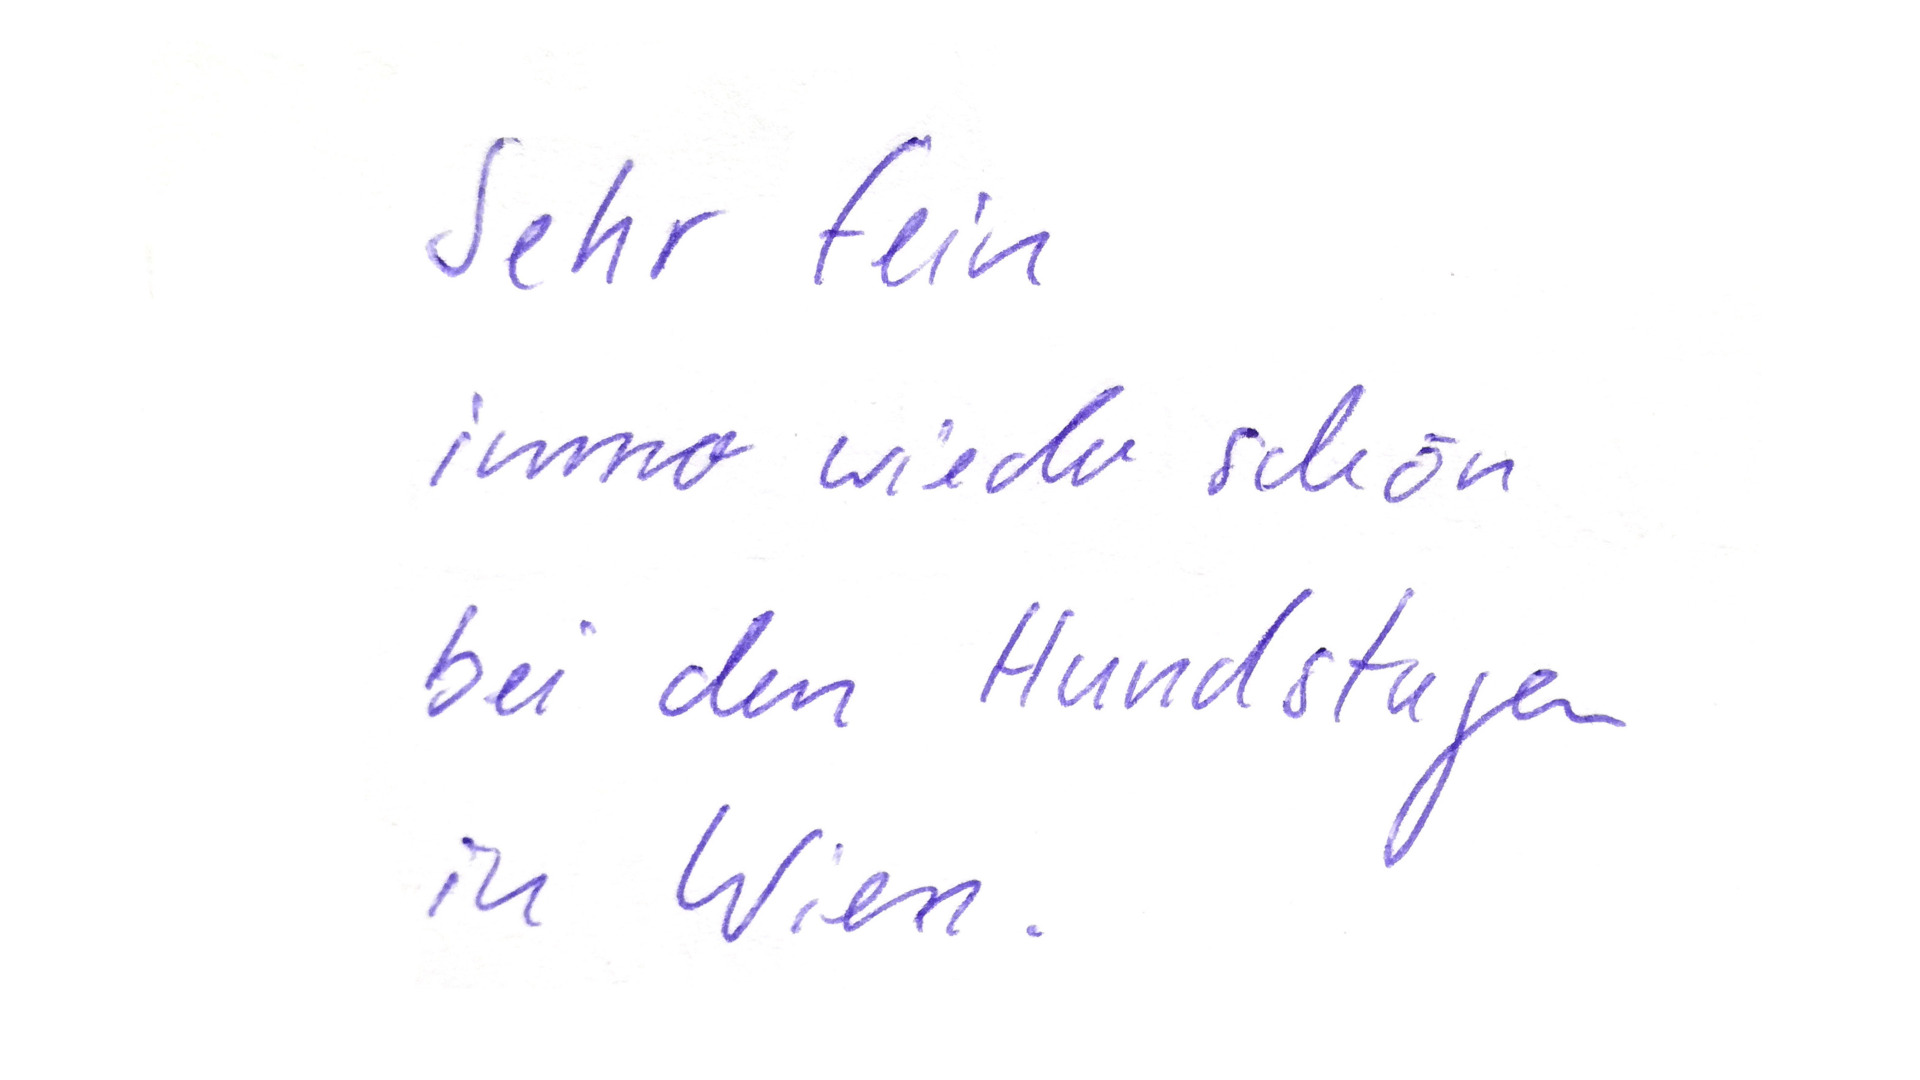 Sehr fein
immer wieder schön
bei den Hundstagen
in Wien.